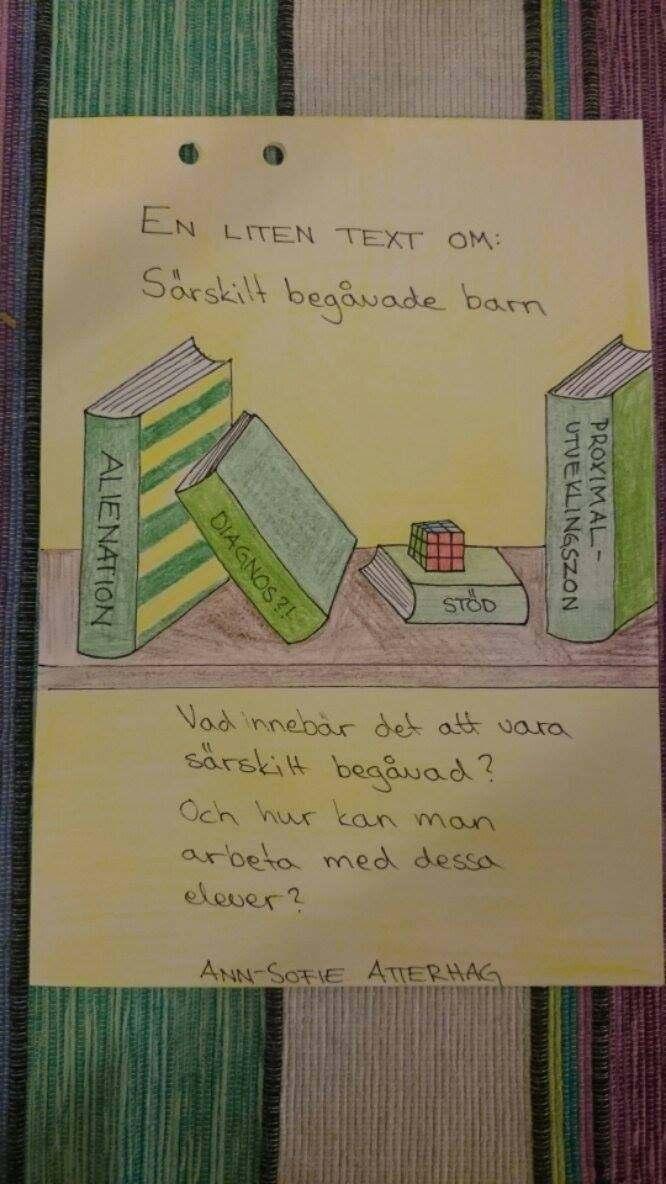 EN LITEN TEXT OM:
Särskilt begåvade barn
ALIENATION
DIAGNOS?!
STÖD
PROXIMAL-
UTVEKLINGSZON
Vad innebär det att vara
särskilt begåvad?
Och hur kan man
arbeta med dessa
elever?
ANN-SOFIE ATTERHAG